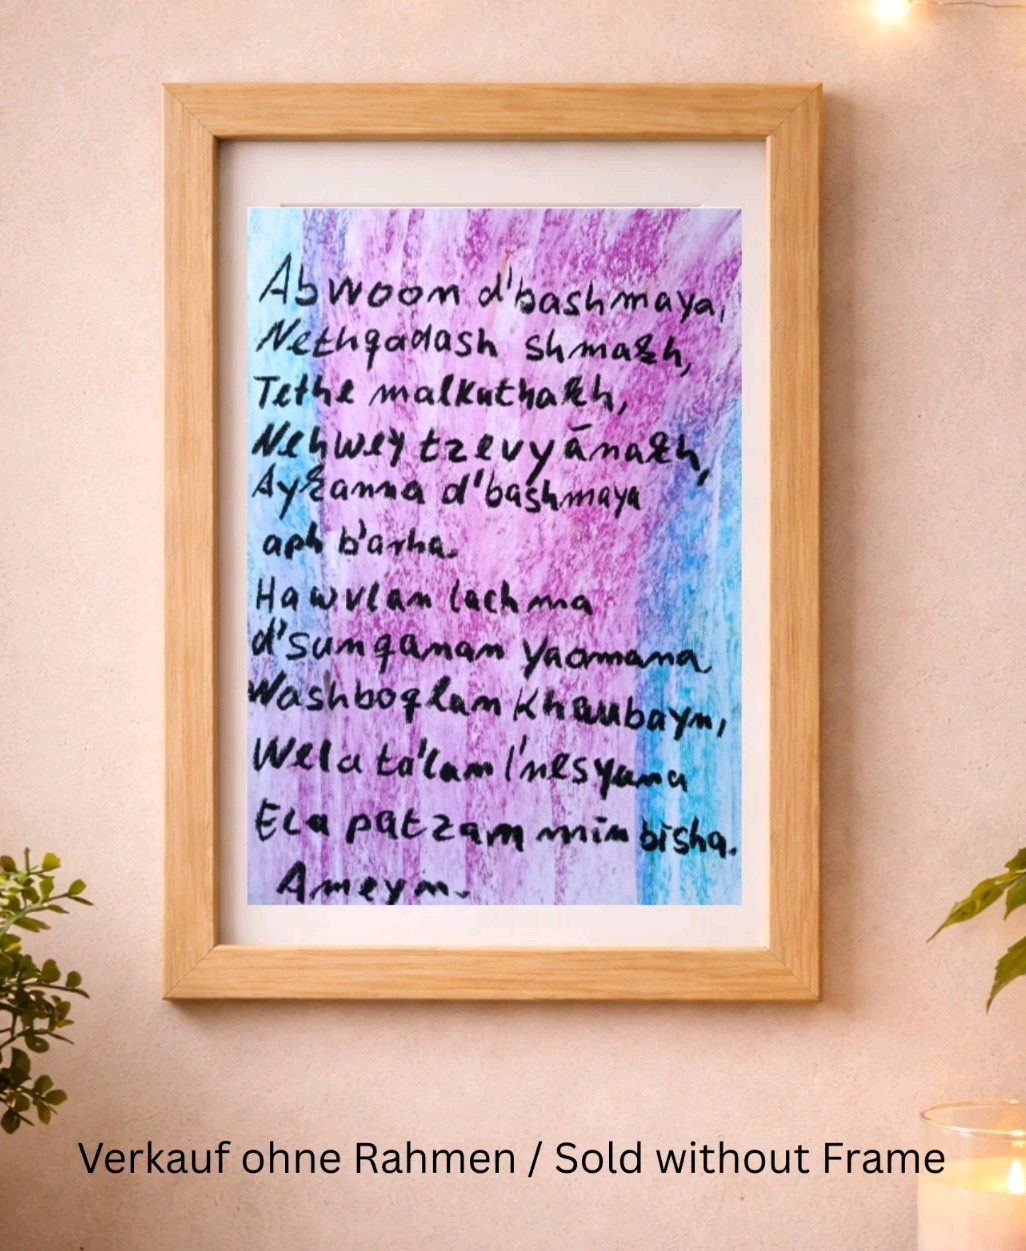 Abwoon d'bashmaya,
Nethqadash shmakh,
Tethe malkuthakh,
Nehwey tzevyānakh,
Aykanna d'bashmaya
aph b'arha.
Hawvlan lachma
d'sunqanan yaomana
Washboqlan Khaubayn,
Wela ta'lan l'nesyuna
Ela patzan min bisha.
Ameyn.
Verkauf ohne Rahmen / Sold without Frame